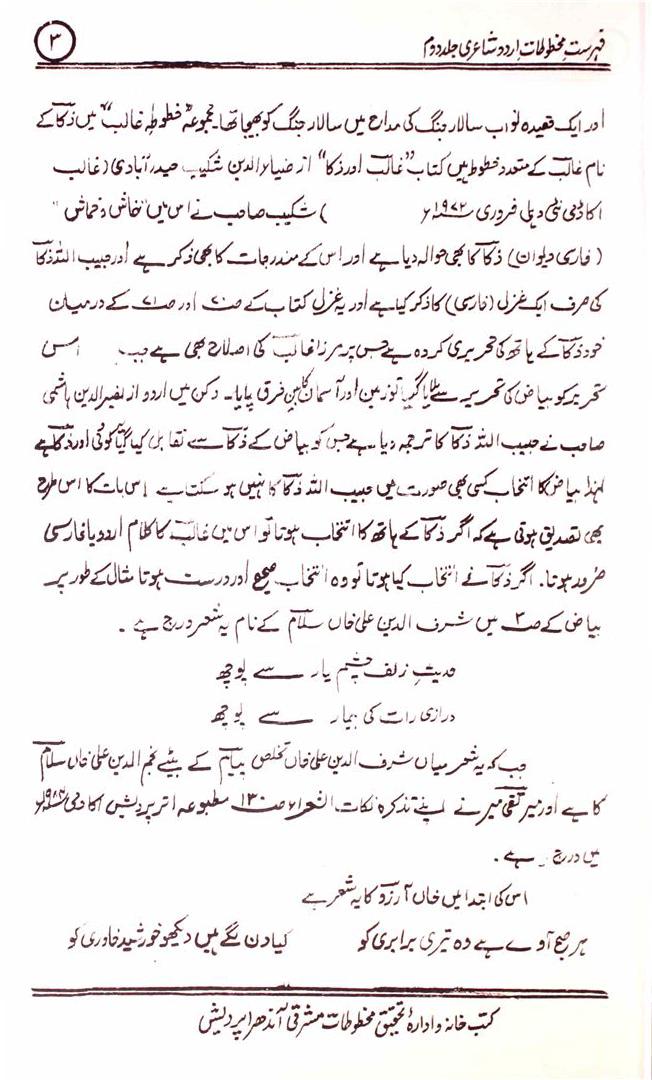 فہرست مخطوطات اردو شاعری جلد دوم
۳
اور ایک قصیدہ نواب سالار جنگ کی مداح میں سالار جنگ کو بھیجا تھا۔ مجموعۂ خطوط غالب" میں ذکاؔ کے
نام غالبؔ کے متعدد خطوط ہیں کتاب "غالب اور ذکا" از ضیاء الدین شکیبؔ حیدرآبادی (غالب
اکاڈمی نئی دہلی فروری ۱۹۷۲ء ) شکیب صاحب نے اس میں "خاش و خماش"
(فارسی دیوان) ذکاؔ کا بھی حوالہ دیا ہے اور اس کے مندرجات کا بھی ذکر ہے اور حبیب اللہ ذکاؔ
کی صرف ایک غزل (فارسی) کا ذکر کیا ہے اور یہ غزل کتاب کے صـ ۷۰ اور صـ ۷۱ کے درمیان
خود ذکاؔ کے ہاتھ کی تحریر کی کردہ ہے جس پر مرزا غالبؔ کی اصلاح بھی ہے جب اس
تحریر کو بیاض کی تحریر سے ملایا گیا تو زمین اور آسمان کا فرق پایا۔ دکن میں اردو از نصیر الدین ہاشمی
صاحب نے حبیب اللہ ذکاؔ کا ترجمہ دیا۔ ہے جس کو بیاض کے ذکاؔ سے تقابل کیا گیا کوئی اور ذکاؔ ہے
لہٰذا بیاض کا انتخاب کسی بھی صورت میں حبیب اللہ ذکاؔ کا نہیں ہو سکتا ہے اس بات کا اس طرح
بھی تصدیق ہوتی ہے کہ اگر ذکاؔ کے ہاتھ کا انتخاب ہوتا تو اس میں غالبؔ کا کلام اردو یا فارسی
ضرور ہوتا۔ اگر ذکاؔ نے انتخاب کیا ہوتا تو وہ انتخاب صحیح اور درست ہوتا مثال کے طور پر
بیاض کے صـ ۳ میں شرف الدین علی خاں سلامؔ کے نام یہ شعر درج ہے۔
حدیثِ زلف چشم یار سے پوچھ
درازی رات کی بیمار سے پوچھ
جب کہ یہ شعر میاں شرف الدین علی خاں تخلص پیامؔ کے بیٹے نجم الدین علی خاں سلامؔ
کا ہے اور میر تقی میرؔ نے اپنے تذکرہ نکات الشعراء صـ ۱۳۰ مطبوعہ اتر پردیش اکاڈمی ۱۹۸۴ء
میں درج ہے۔
اس کی ابتدا میں خاں آرزوؔ کا یہ شعر ہے
ہر صبح آوے ہے وہ تیری برابری کو کیا دن لگے ہیں دیکھو خورشید خاوری کو
کتب خانہ و ادارۂ تحقیق مخطوطات مشرقی آندھرا پردیش